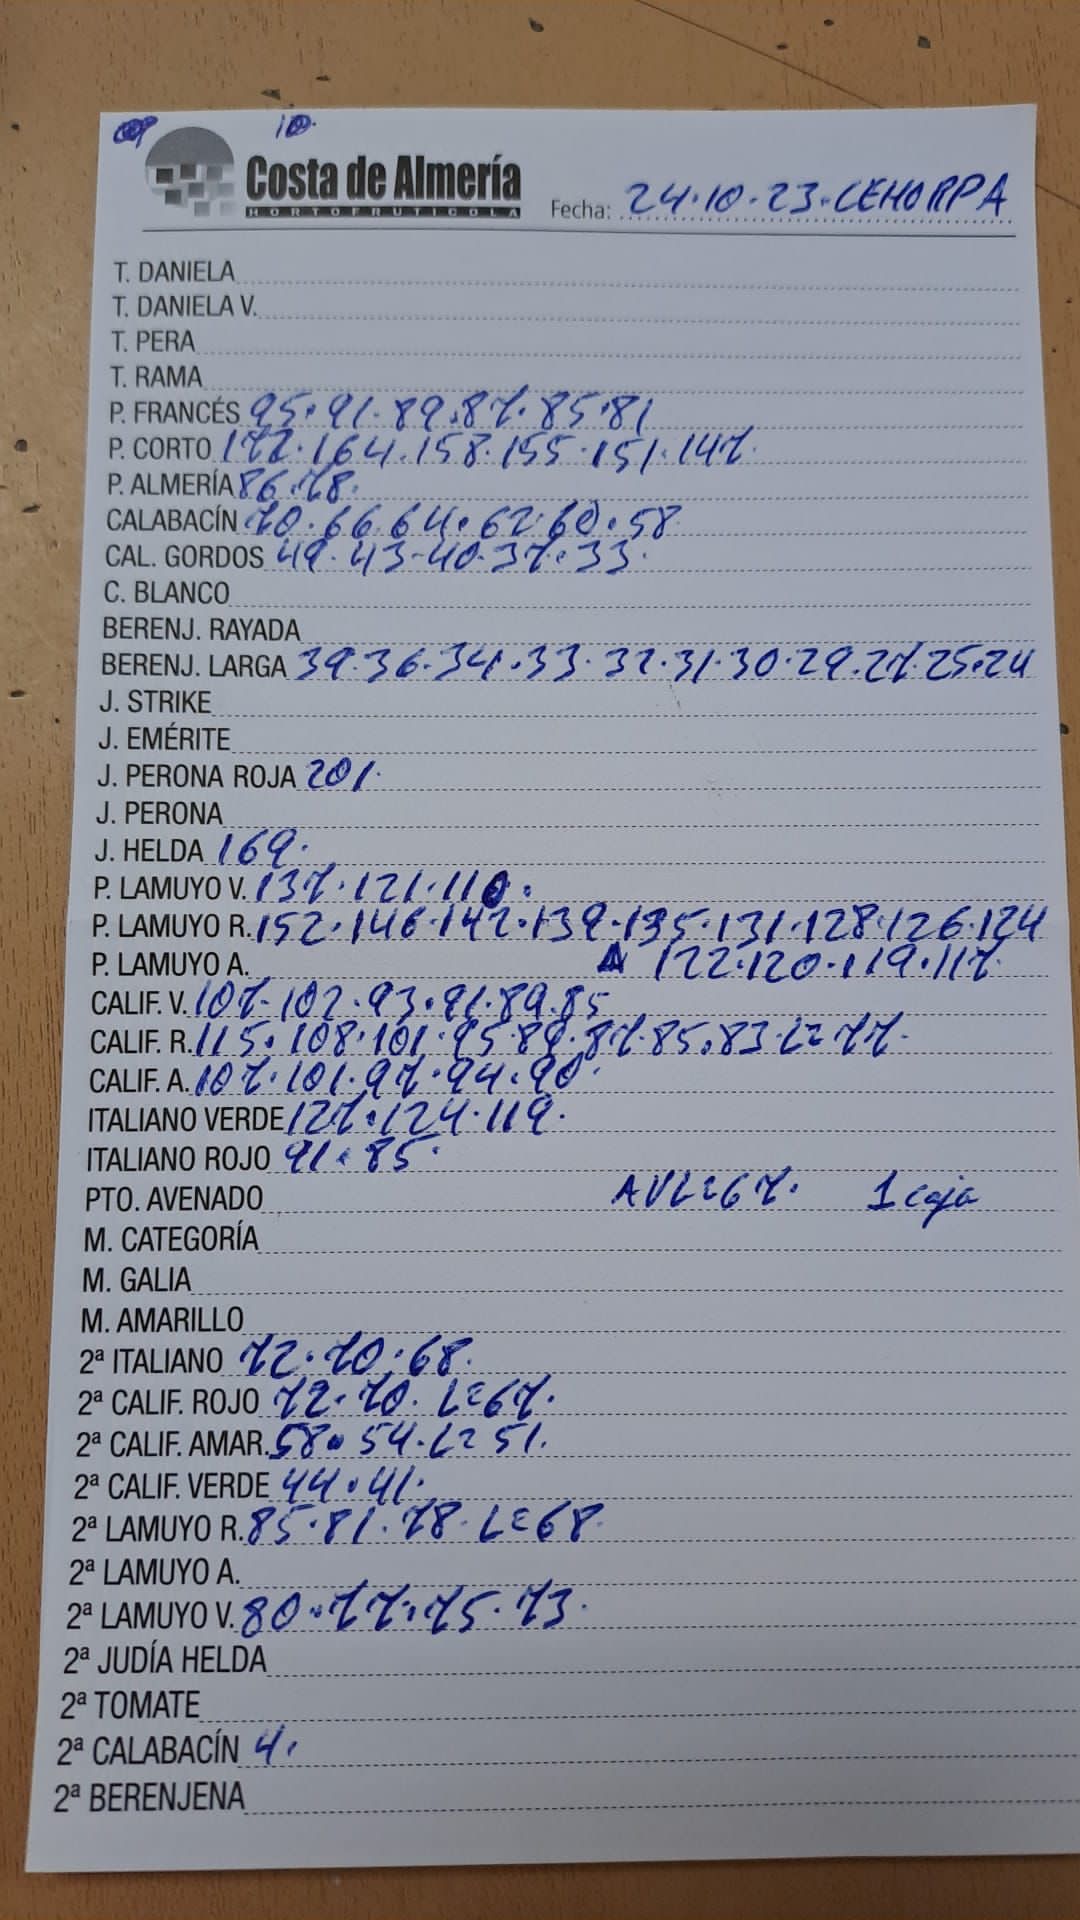 10.
Costa de Almería
HORTOFRUTICOLA
Fecha: 24.10.23.CEHORPA
T. DANIELA
T. DANIELA V.
T. PERA
T. RAMA
P. FRANCÉS 95.91.89.87.85.81
P. CORTO 172.164.158.155.151.147.
P. ALMERÍA 86.78.
CALABACÍN 70.66.64.62.60.58
CAL. GORDOS 49.43-40.37.33.
C. BLANCO
BERENJ. RAYADA
BERENJ. LARGA 39.36.34.33.32.31.30.29.27.25.24
J. STRIKE
J. EMÉRITE
J. PERONA ROJA 201.
J. PERONA
J. HELDA 169.
P. LAMUYO V. 137.121.110.
P. LAMUYO R. 152.146.142.139.135.131.128.126.124
P. LAMUYO A. 122.120.119.117.
CALIF. V. 107-102.93.91.89.85
CALIF. R. 115.108.101.95.89.87.85.83.L=77.
CALIF. A. 107.101.97.94.90.
ITALIANO VERDE 127.124.119.
ITALIANO ROJO 91.85.
PTO. AVENADO AVL=67. 1 caja
M. CATEGORÍA
M. GALIA
M. AMARILLO
2ª ITALIANO 72.70.68.
2ª CALIF. ROJO 72.70. L=67.
2ª CALIF. AMAR. 58.54.L=51.
2ª CALIF. VERDE 44.41.
2ª LAMUYO R. 85.81.78.L=68.
2ª LAMUYO A.
2ª LAMUYO V. 80.77.75.73.
2ª JUDÍA HELDA
2ª TOMATE
2ª CALABACÍN 4.
2ª BERENJENA